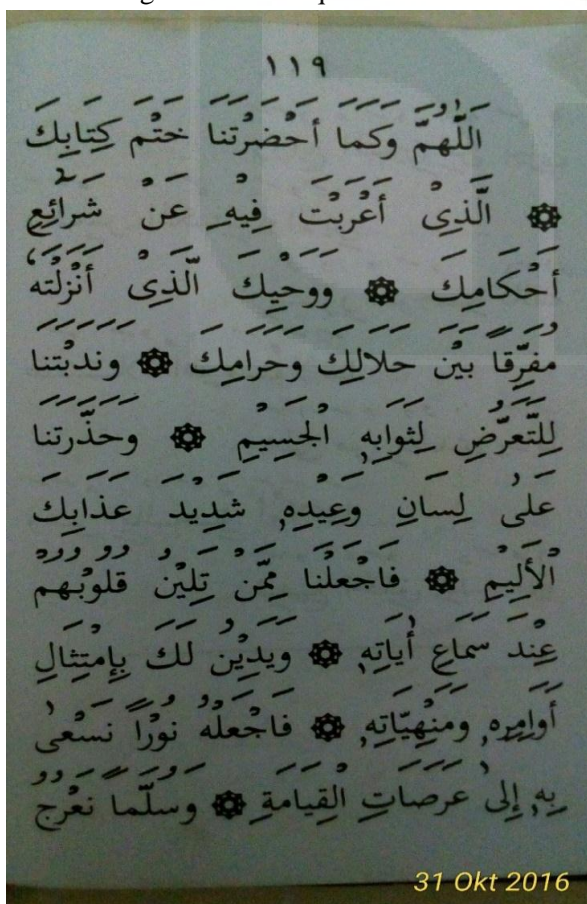 ١١٩
اَللّٰهُمَّ وَكَمَا أَحْضَرْتَنَا خَتْمَ كِتَابِكَ
۞ الَّذِيْ أَعْرَبْتَ فِيْهِ عَنْ شَرَائِعِ
أَحْكَامِكَ ۞ وَوَحْيِكَ الَّذِيْ أَنْزَلْتَهُ
مُفَرِّقًا بَيْنَ حَلَالِكَ وَحَرَامِكَ ۞ وَنَدَبْتَنَا
لِلتَّعَرُّضِ لِثَوَابِهِ الْجَسِيْمِ ۞ وَحَذَّرْتَنَا
عَلَى لِسَانِ وَعِيْدِهِ شَدِيْدَ عَذَابِكَ
الْأَلِيْمِ ۞ فَاجْعَلْنَا مِمَّنْ تَلِيْنُ قُلُوْبُهُمْ
عِنْدَ سَمَاعِ أٰيَاتِهِ ۞ وَيَدِيْنُ لَكَ بِإِمْتِثَالِ
أَوَامِرِهِ وَمَنْهِيَّاتِهِ ۞ فَاجْعَلْهُ نُوْرًا نَسْعٰى
بِهِ إِلٰى عَرَصَاتِ الْقِيَامَةِ ۞ وَسُلَّمًا نَعْرُجُ
31 Okt 2016